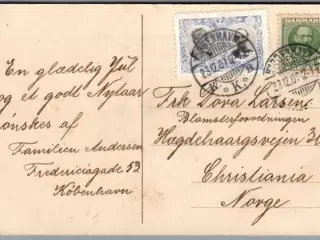 En glædelig Jul
og et godt Nytaar
ønskes af
Familien Andersen
Fredericiagade 53.
København
KJØBENHAVN
23.12.07
DANMARK
Frk Dora Larsen
Blomsterforretningen
Hægdehaugsvejen 3
Christiania
Norge